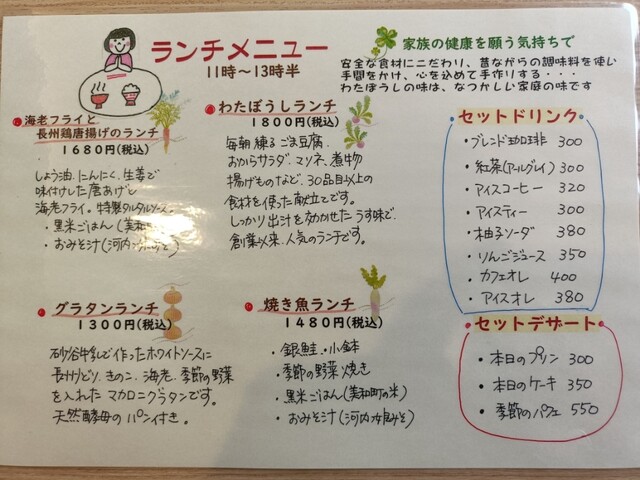 ランチメニュー
11時〜13時半
家族の健康を願う気持ちで
安全な食材にこだわり、昔ながらの調味料を使い
手間をかけ、心を込めて手作りする・・・
わたぼうしの味は、なつかしい家庭の味です
海老フライと
長州鶏唐揚げのランチ
1680円(税込)
しょう油、にんにく、生姜で
味付けした唐あげと
海老フライ。特製タルタルソース
・黒米ごはん(美和町
・おみそ汁(河内
わたぼうしランチ
1800円(税込)
毎朝練るごま豆腐、
おからサラダ、マリネ、煮物
揚げものなど、30品目以上の
食材を使った献立てです。
しっかり出汁を効かせたうす味で、
創業以来、人気のランチです。
グラタンランチ
1300円(税込)
砂谷牛乳で作ったホワイトソースに
長州どり、きのこ、海老、季節の野菜
を入れたマカロニグラタンです。
天然酵母のパン付き。
焼き魚ランチ
1480円(税込)
・銀鮭・小鉢
・季節の野菜焼き
・黒米ごはん(美和町の米)
・おみそ汁(河内女房みそ)
セットドリンク
・ブレンド珈琲 300
・紅茶(アールグレイ) 300
・アイスコーヒー 320
・アイスティー 300
・柚子ソーダ 380
・りんごジュース 350
・カフェオレ 400
・アイスオレ 380
セットデザート
・本日のプリン 300
・本日のケーキ 350
・季節のパフェ 550